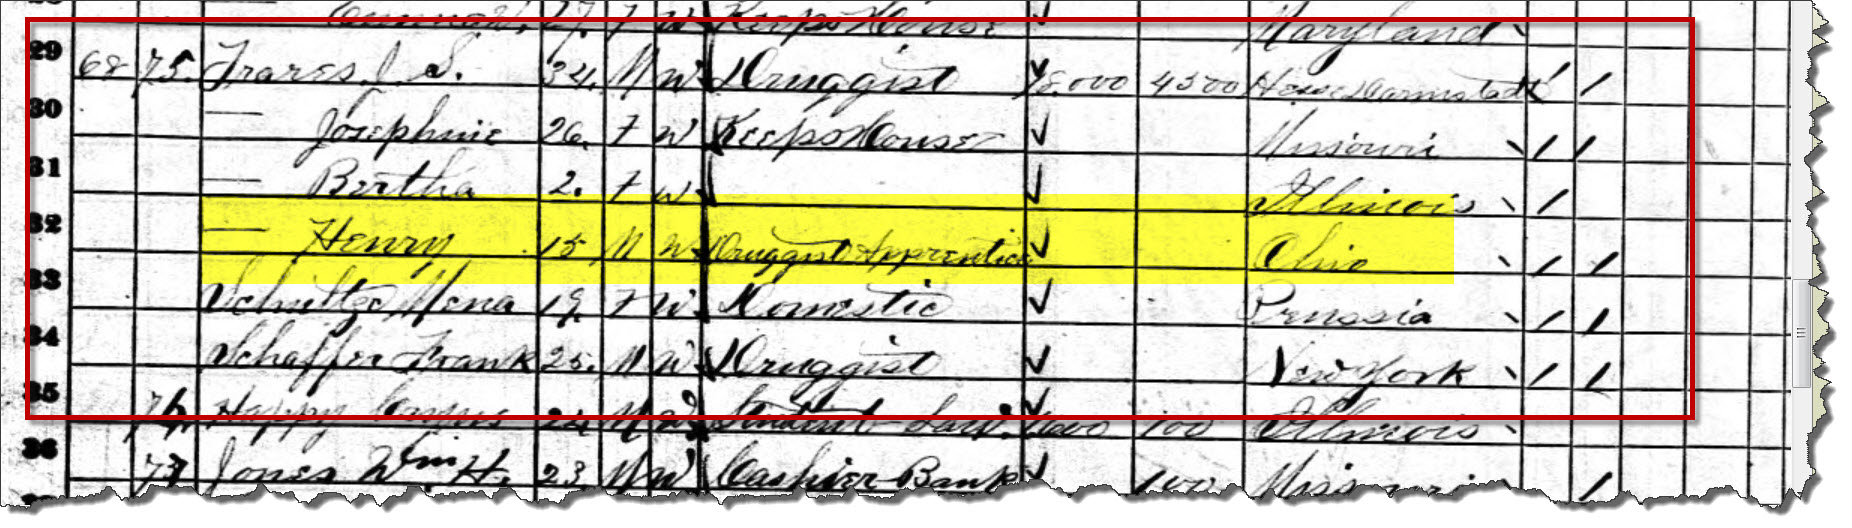 27. F W Keeps House Maryland
29 68 75. Frares J S. 34. M W Druggist 18,000 4500 Hesse Darmstadt
30 — Josephine 26. F W Keeps House Missouri
31 — Bertha 2. F W Illinois
32 — Henry 15 M W Druggist Apprentice Ohio
33 Schultze Mena 19. F W Domestic Prussia
34 Schaffer Frank 25. M W Druggist New York
35 76 Happy 24 M W Student Law. 100 Illinois
36 77 Jones Wm H. 23 M W Cashier Bank 100 Missouri